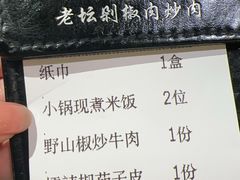 老坛剁椒肉炒肉
纸巾 1盒
小锅现煮米饭 2位
野山椒炒牛肉 1份
茄子皮 1份